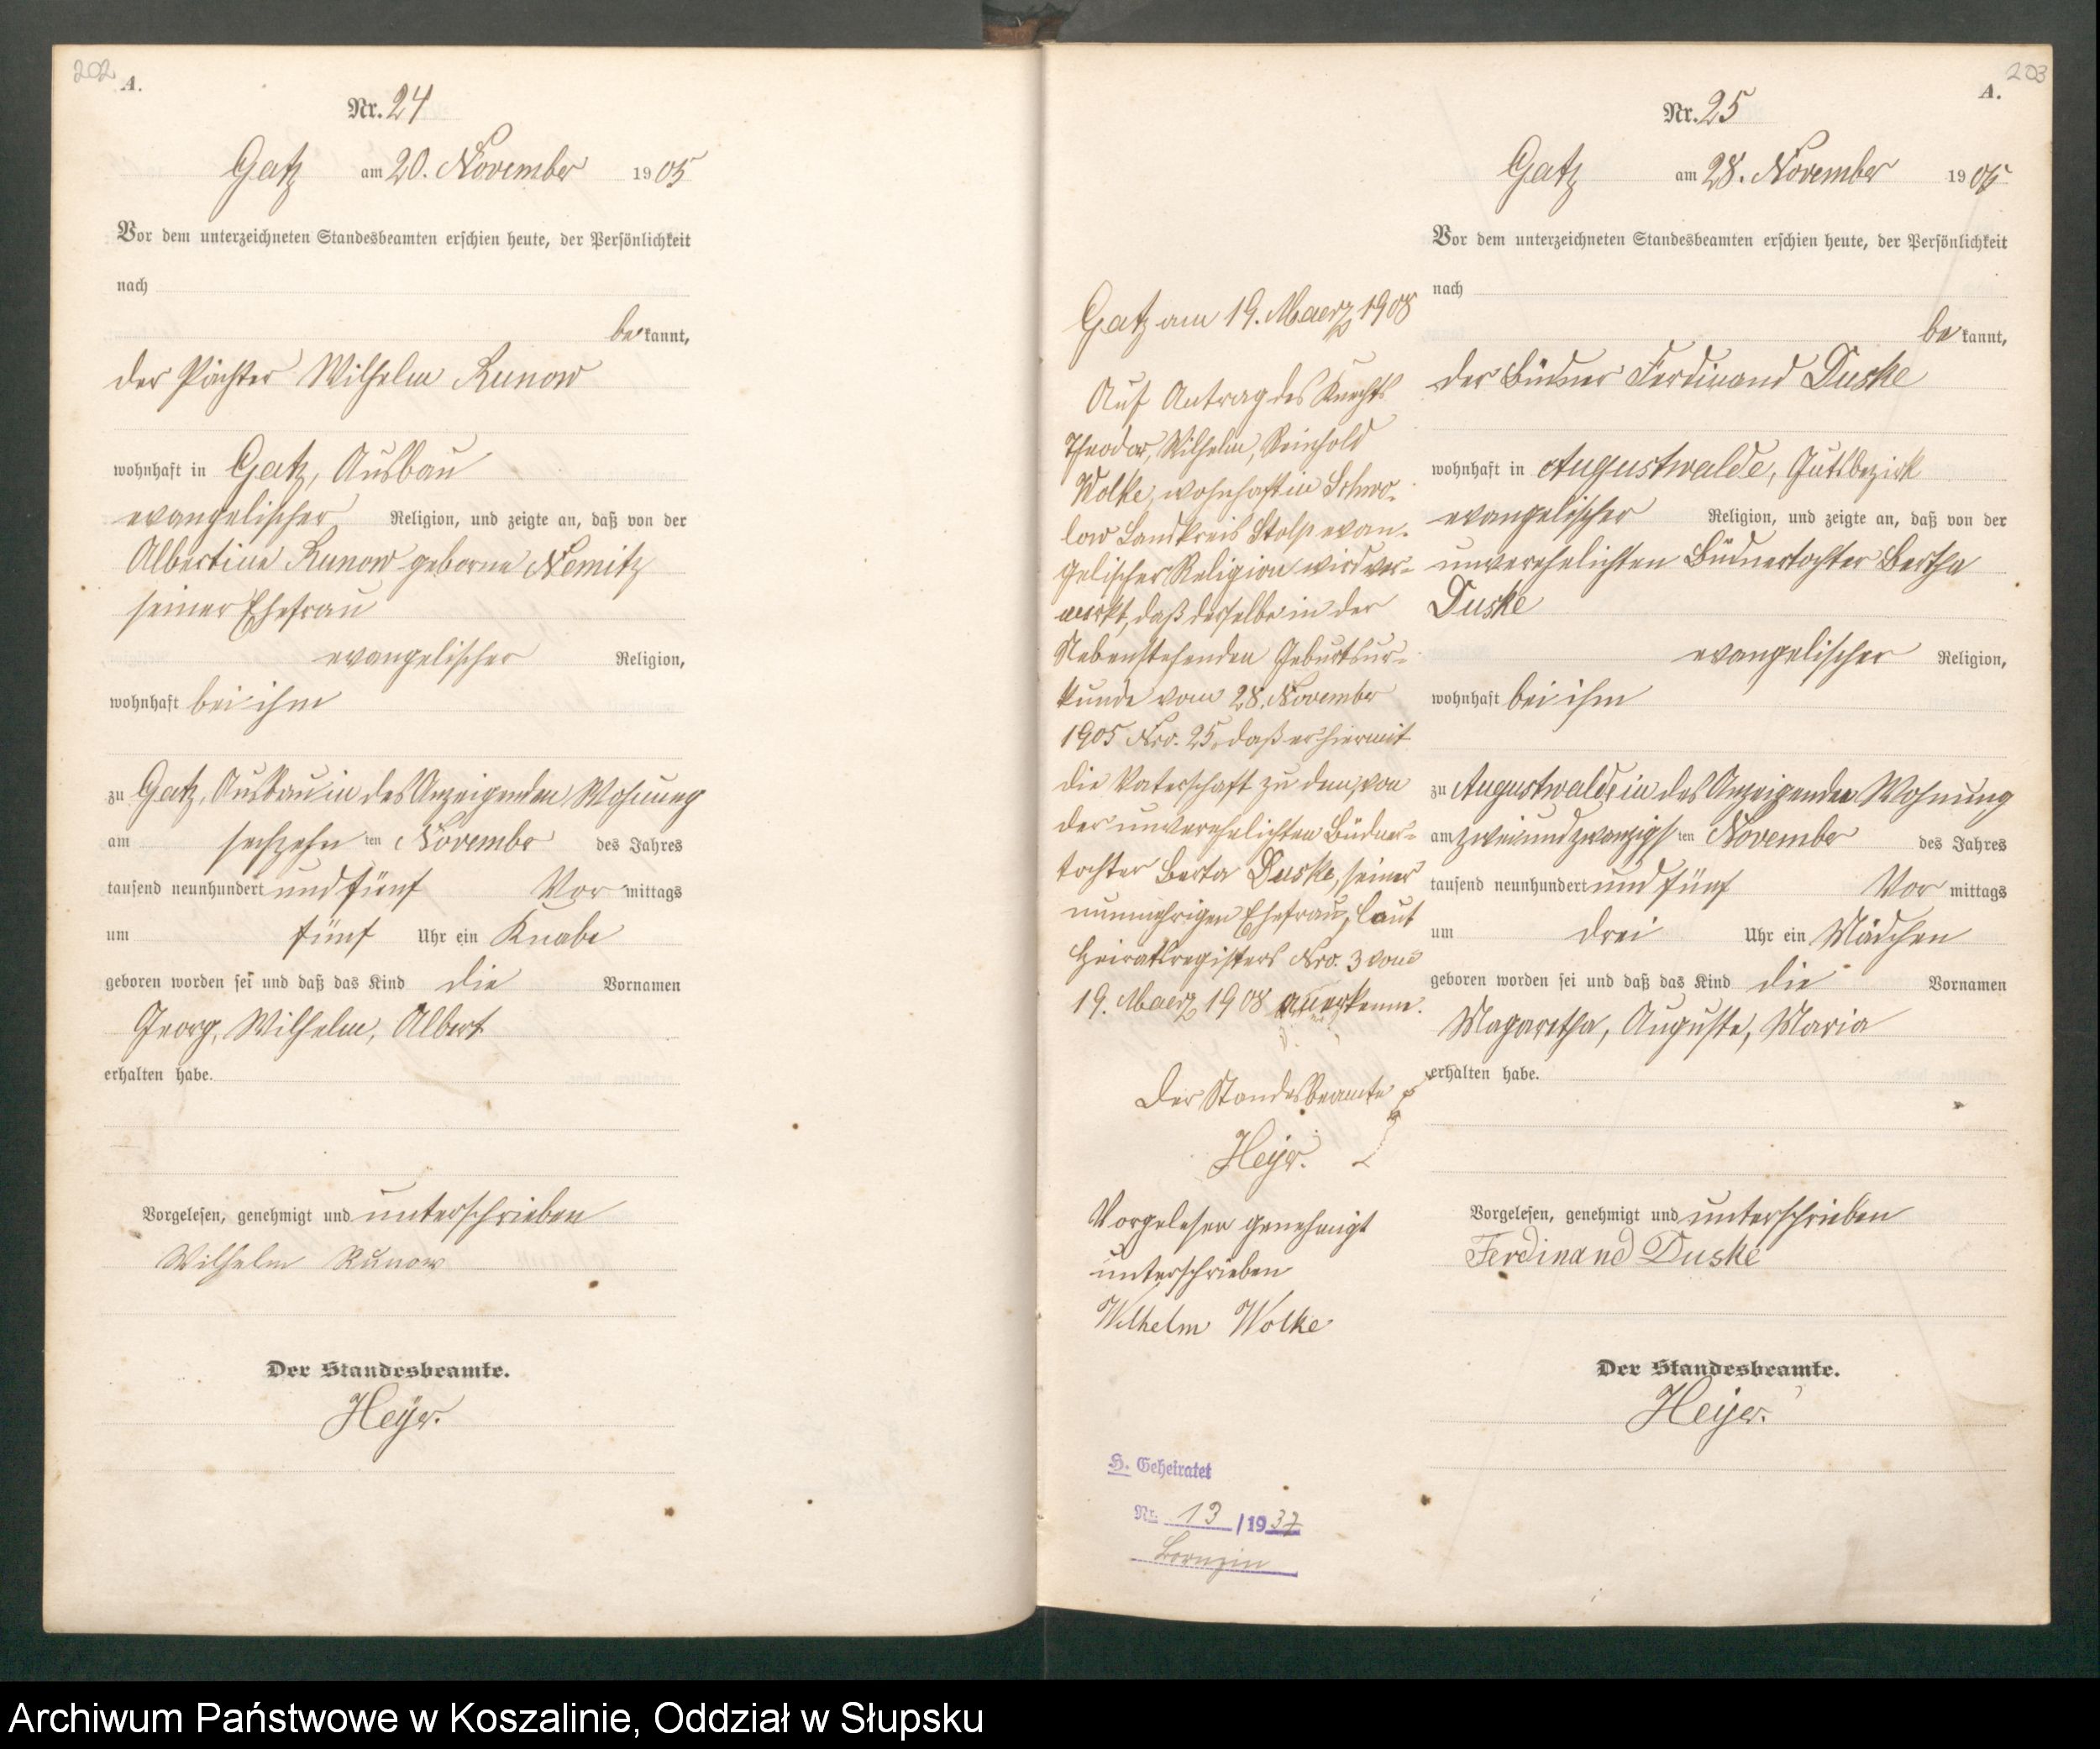 202
A.
Nr. 24
Gatz am 20. November 1905
Vor dem unterzeichneten Standesbeamten erschien heute, der Persönlichkeit
nach
be kannt,
der Pächter Wilhelm Runow
wohnhaft in Gatz, Ausbau
evangelischer Religion, und zeigte an, daß von der
Albertine Runow geborne Nemitz
seiner Ehefrau
evangelischer Religion,
wohnhaft bei ihm
zu Gatz, Ausbau in des Anzeigenden Wohnung
am sechzehn ten November des Jahres
tausend neunhundert und fünf Vor mittags
um fünf Uhr ein Knabe
geboren worden sei und daß das Kind die Vornamen
Georg, Wilhelm, Albert
erhalten habe.
Vorgelesen, genehmigt und unterschrieben
Wilhelm Runow
Der Standesbeamte.
Heyer.
Gatz am 19. Maerz 1908
Auf Antrag des Knechts
Theodor, Wilhelm, Reinhold
Wolke, wohnhaft in Schwo-
low Landkreis Stolp evan-
gelischer Religion wird ver-
merkt, daß derselbe in der
Nebenstehenden Geburtsur-
kunde vom 28. November
1905 Nro. 25, daß er hiermit
die Vaterschaft zu dem, von
der unverehelichten Büdner-
tochter Berta Duske, seiner
nunmehrigen Ehefrau, laut
Heiratsregisters Nro. 3 vom
19. Maerz 1908 anerkenne.
Der Standesbeamte
Heyer.
Vorgelesen genehmigt
unterschrieben
Wilhelm Wolke
H. Geheiratet
Nr. 13 /1937
Bornzin
203
A.
Nr. 25
Gatz am 28. November 1905
Vor dem unterzeichneten Standesbeamten erschien heute, der Persönlichkeit
nach
be kannt,
der Büdner Ferdinand Duske
wohnhaft in Augustwalde, Gutsbezirk
evangelischer Religion, und zeigte an, daß von der
unverehelichten Büdnertochter Bertha
Duske
evangelischer Religion,
wohnhaft bei ihm
zu Augustwalde in des Anzeigenden Wohnung
am zweiundzwanzigs ten November des Jahres
tausend neunhundert und fünf Vor mittags
um drei Uhr ein Mädchen
geboren worden sei und daß das Kind die Vornamen
Magaretha, Auguste, Maria
erhalten habe.
Vorgelesen, genehmigt und unterschrieben
Ferdinand Duske
Der Standesbeamte.
Heyer.
Archiwum Państwowe w Koszalinie, Oddział w Słupsku